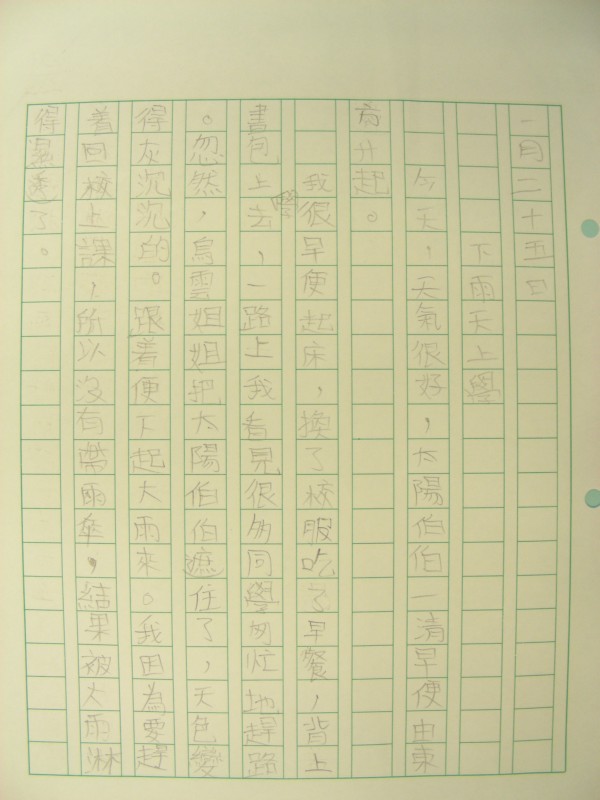 一月二十五日
下雨天上學
今天，天氣很好，太陽伯伯一清早便由東
方升起。
我很早便起床，換了校服吃了早餐，背上
書包上學去，一路上我看見很多同學匆忙地趕路
。忽然，烏雲姐姐把太陽伯伯遮住了，天色變
得灰沉沉的。跟着便下起大雨來。我因為要趕
着回校上課，所以沒有帶雨傘，結果被大雨淋
得濕透了。